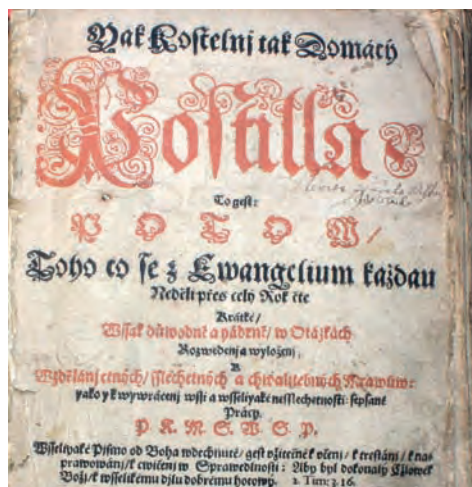 Yak Kostelnj tak Domácý
Postilla
To gest:
POTOM/
Toho co se z Ewangelium každau
Neděli přes celý Rok čte
Krátké/
Wssak důwodné a pádné/ w Otázkách
Rozwedenj a wyloženj,
K
Wzdělánj ctných/ sslechetných a chwalitebných Mrawůw:
yako y k wywrácenj wssi a wsseliyaké nesslechetnosti: sepsané
Prácy.
P. K. M. S. W. S. P.
Wsseliyaké Pjsmo od Boha wdechnuté/ gest vžitečné k včenj/ k trestánj/ k na-
prawowánj/ k cwičenj w Sprawedlnosti: Aby byl dokonalý Cžlowěk
Božj/ k wsselikému djlu dobrému hotowý. 2. Tim: 3. 16.